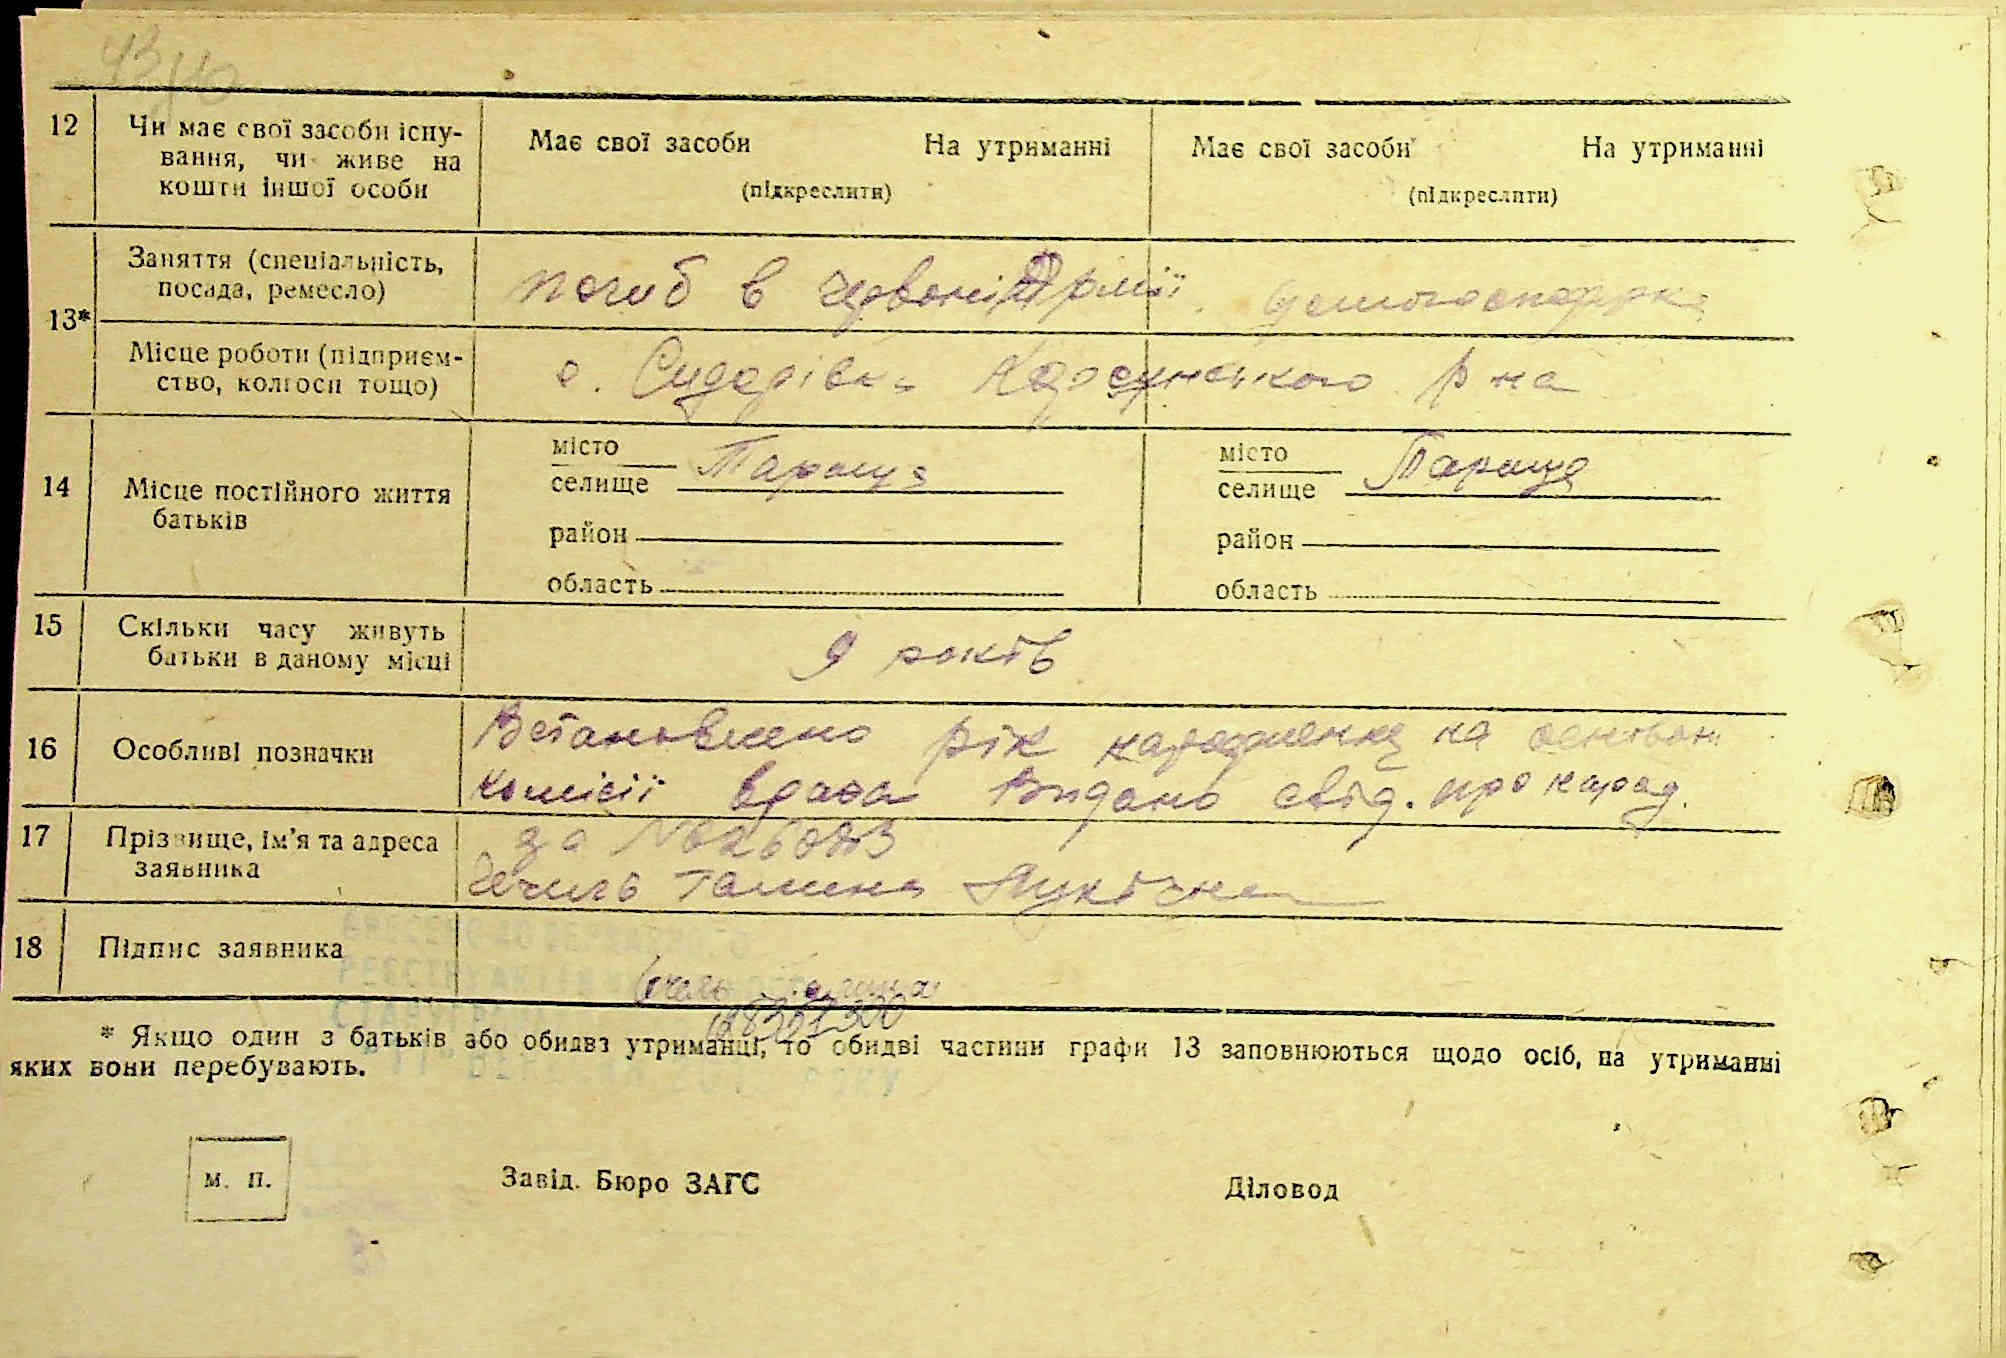 12 Чи має свої засоби існу- Має свої засоби На утриманні Має свої засоби На утриманні
вання, чи живе на
кошти іншої особи (підкреслити) (підкреслити)
Заняття (спеціальність, погиб в Червоній Армії домогоспорка
посада, ремесло)
13*
Місце роботи (підприєм- с. Сидорівка Корсунського р на
ство, колгосп тощо)
14 Місце постійного життя
батьків
місто Тараща місто Тараща
селище селище
район район
область область
15 Скільки часу живуть 9 років
батьки в даному місці
16 Особливі позначки Встановлено рік народження на основані
комісії врача Видано свід. про народ.
17 Прізвище, ім'я та адреса за №
заявника Галина
18 Підпис заявника
* Якщо один з батьків або обидва утриманці, то обидві частини графи 13 заповнюються щодо осіб, на утриманні
яких вони перебувають.
м. п. Завід. Бюро ЗАГС Діловод